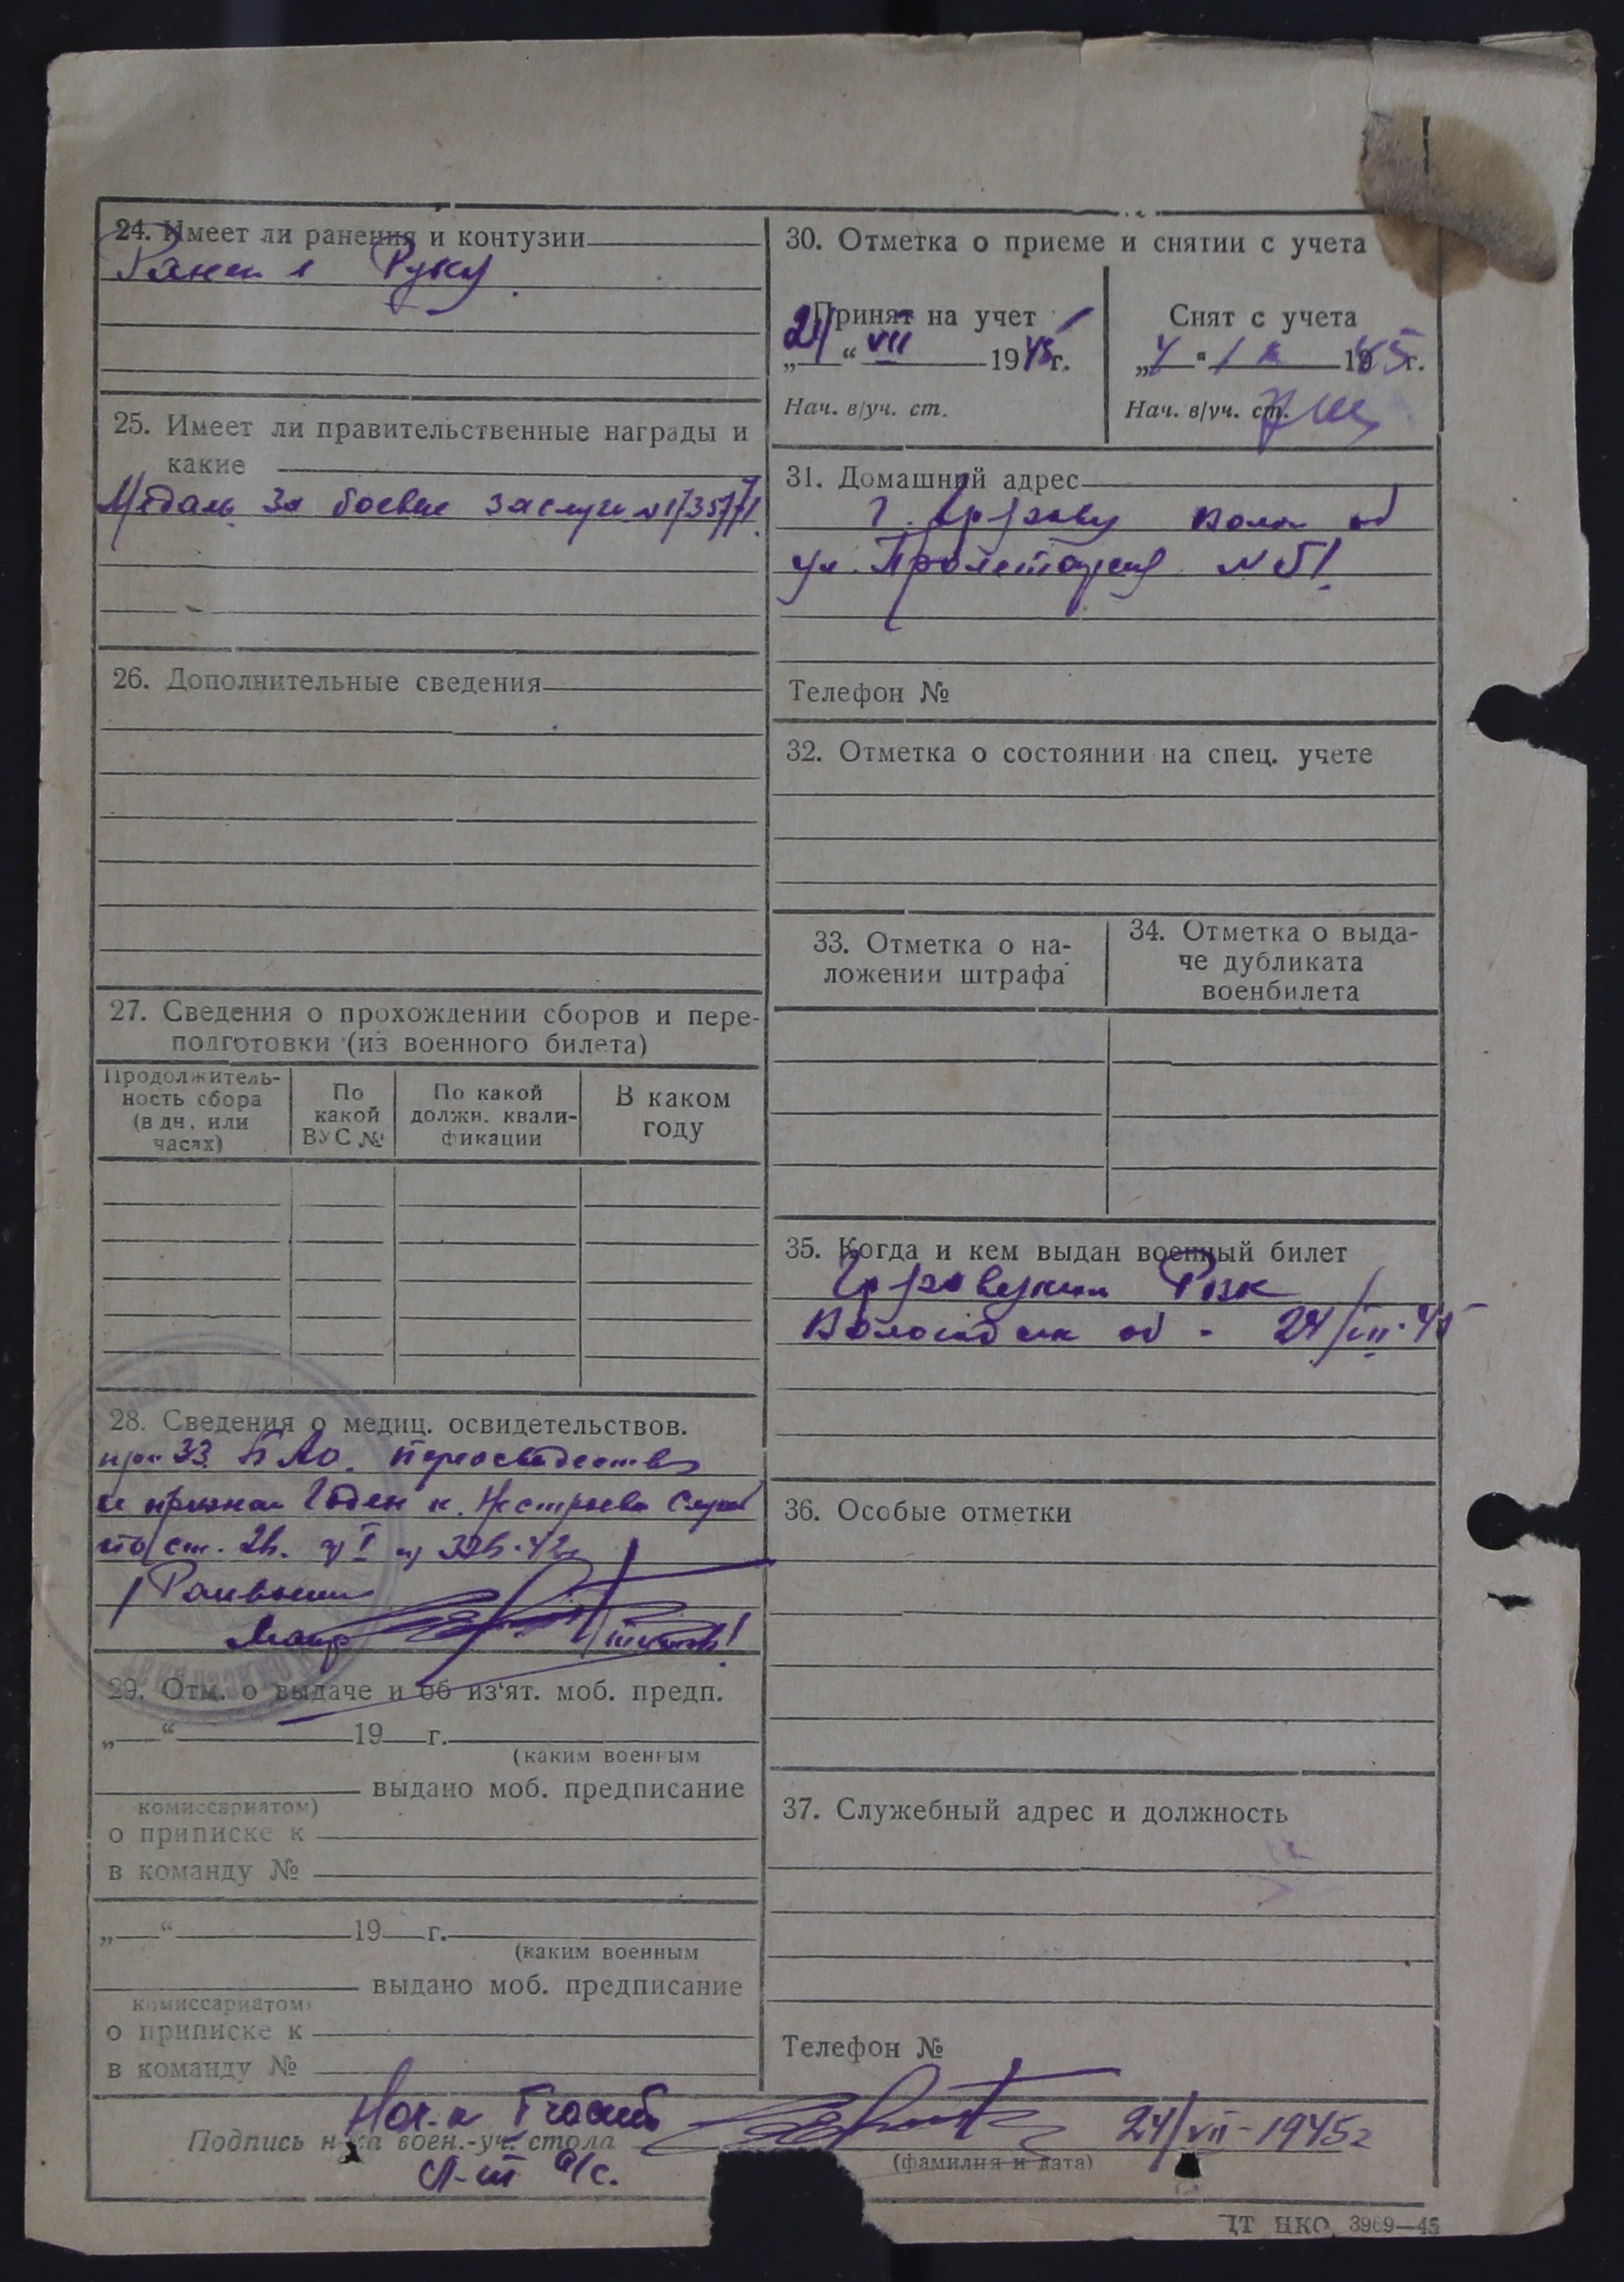 24. Имеет ли ранения и контузии
Ранен в Руку.
25. Имеет ли правительственные награды и
какие
Медаль За боевые заслуги №
26. Дополнительные сведения
27. Сведения о прохождении сборов и пере-
подготовки (из военного билета)
Продолжитель-
ность сбора
(в дн. или
часах)
По
какой
ВУС №
По какой
должн. квали-
фикации
В каком
году
28. Сведения о медиц. освидетельствов.
признан Годен к
по ст. 2б.
Майор
29. Отм. о выдаче и об из'ят. моб. предп.
„ “ 19 г.
(каким военным
выдано моб. предписание
комиссариатом)
о приписке к
в команду №
„ “ 19 г.
(каким военным
выдано моб. предписание
комиссариатом)
о приписке к
в команду №
30. Отметка о приеме и снятии с учета
Принят на учет
„24“ VII 1945 г.
Нач. в/уч. ст.
Снят с учета
1945 г.
Нач. в/уч. ст.
31. Домашний адрес
г. Волог об
ул. Пролетарская №51
Телефон №
32. Отметка о состоянии на спец. учете
33. Отметка о на-
ложении штрафа
34. Отметка о выда-
че дубликата
военбилета
35. Когда и кем выдан военный билет
Рвк
об - 24/VII-45
36. Особые отметки
37. Служебный адрес и должность
Телефон №
Нач-к I части
Подпись н-ка воен.-уч. стола
24/VII-1945г
(фамилия и дата)
Л-т а/с.
ЦТ НКО 3969—45